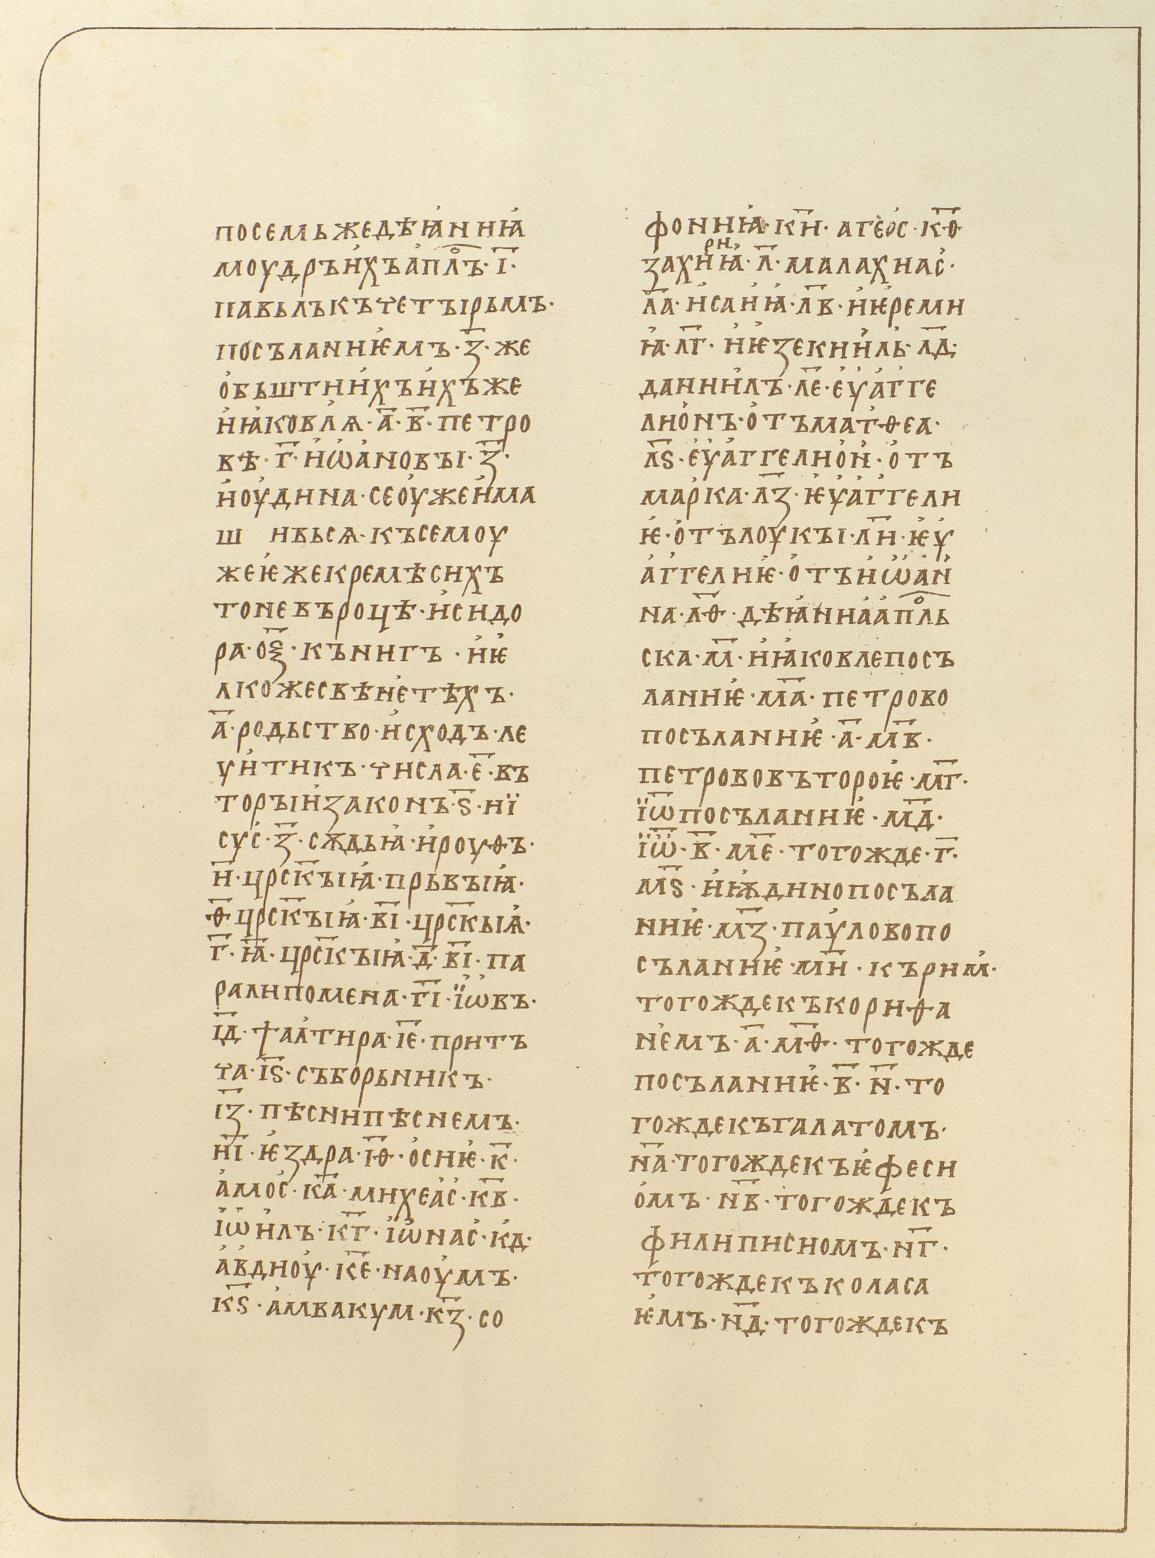 посемьжедѣꙗниꙗ
моудрꙑихъапл҃ъ·г҃·
павьлъкъчетꙑрьмъ·
посъланиѥмъ·з҃·же
обьштиихъихъже
иꙗковлѧ·а҃·в҃·петро
вѣ·г҃·иѡановꙑ·з҃·
иоудина·сеоужеима
ш ивьсѧ·къ семоу
жеѥжекремѣсихъ
тоневъроцѣ·исидо
ра·оѯ҃·кънигъ·иѥ
ликожесвѣнетѣхъ·
а҃·родьство·исходъ·ле
уитикъ·числа·е҃·въ
торꙑизаконъ·ѕ҃·иї
сус·з҃·сѫдьꙗ·ироуѳъ·
и҃·црск҃ꙑꙗ·прьвꙑꙗ·
ѳ҃·црск҃ꙑꙗ·в҃і·црск҃ыꙗ·
г҃·ꙗ҃·црскꙑꙗ·д҃·в҃і·па
ралипомена·г҃і·їѡвъ·
ід҃·ѱалтира·іе҃·прит
ча·іѕ҃·съборьникъ·
із҃·пѣснипѣснемъ·
иі҃·ѥздра·іѳ҃·осиѥ·к҃·
амос·ка҃·михеас·кв҃·
іѡилъ·кг҃·іѡнас·кд·
авдиоу·ке҃·наоумъ·
кѕ҃·амвакум·кз҃·со
фониꙗ·ки҃·агеос·кѳ҃
захриꙗ·л҃·малахиас·
ла҃·исаиꙗ·лв҃·иѥреми
ꙗ·лг҃·иѥзекииль·лд҃·
даниилъ·ле҃·еуагге
лионъ·отъматѳеа·
лѕ҃·еуаггелион·отъ
марка·лз҃·ѥуаггели
ѥ·отълоукꙑ·ли҃·ѥу
аггелиѥ·отъиѡан
на·лѳ҃·дѣꙗниаапл҃ь
ска·м҃·иꙗковлепосъ
ланиѥ·ма҃·петрово
посъланиѥ·а҃·мв҃·
петрововътороѥ·мг҃·
їѡ҃посъланиѥ·мд҃·
їѡ҃·в҃·ме҃·тогожде·г҃·
мѕ҃·иѭдинопосъла
ниѥ·мз҃·пауловопо
съланиѥ·ми҃·кърим·
тогождекъкориѳа
немъ·а҃·мѳ҃·тогожде
посъланиѥ·в҃·н҃·то
гождекъгалатомъ·
на҃·тогождекъѥфеси
омъ·нв҃·тогождекъ
филиписиомъ·нг҃·
тогождекъколаса
ѥмъ·нд҃·тогождекъ